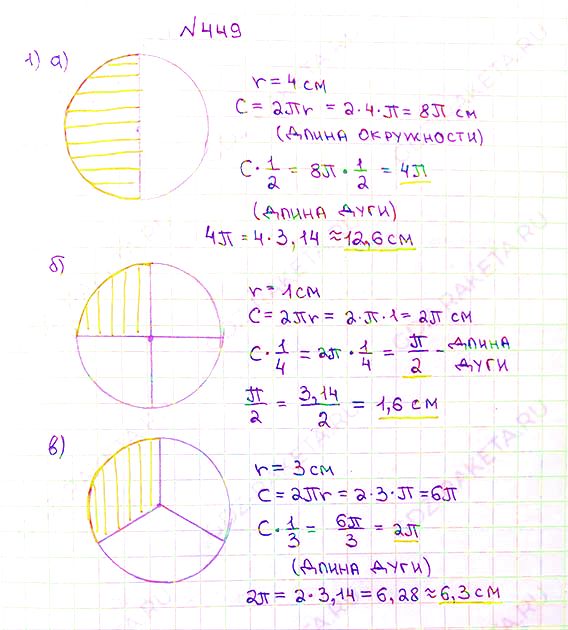 №449
1) а)
r = 4 см
C = 2πr = 2·4·π = 8π см
(ДЛИНА ОКРУЖНОСТИ)
C·1/2 = 8π·1/2 = 4π
(ДЛИНА ДУГИ)
4π = 4·3,14 ≈ 12,6 см
б)
r = 1 см
C = 2πr = 2·π·1 = 2π см
C·1/4 = 2π·1/4 = π/2 - ДЛИНА ДУГИ
π/2 = 3,14/2 = 1,6 см
в)
r = 3 см
C = 2πr = 2·3·π = 6π
C·1/3 = 6π/3 = 2π
(ДЛИНА ДУГИ)
2π = 2·3,14 = 6,28 ≈ 6,3 см